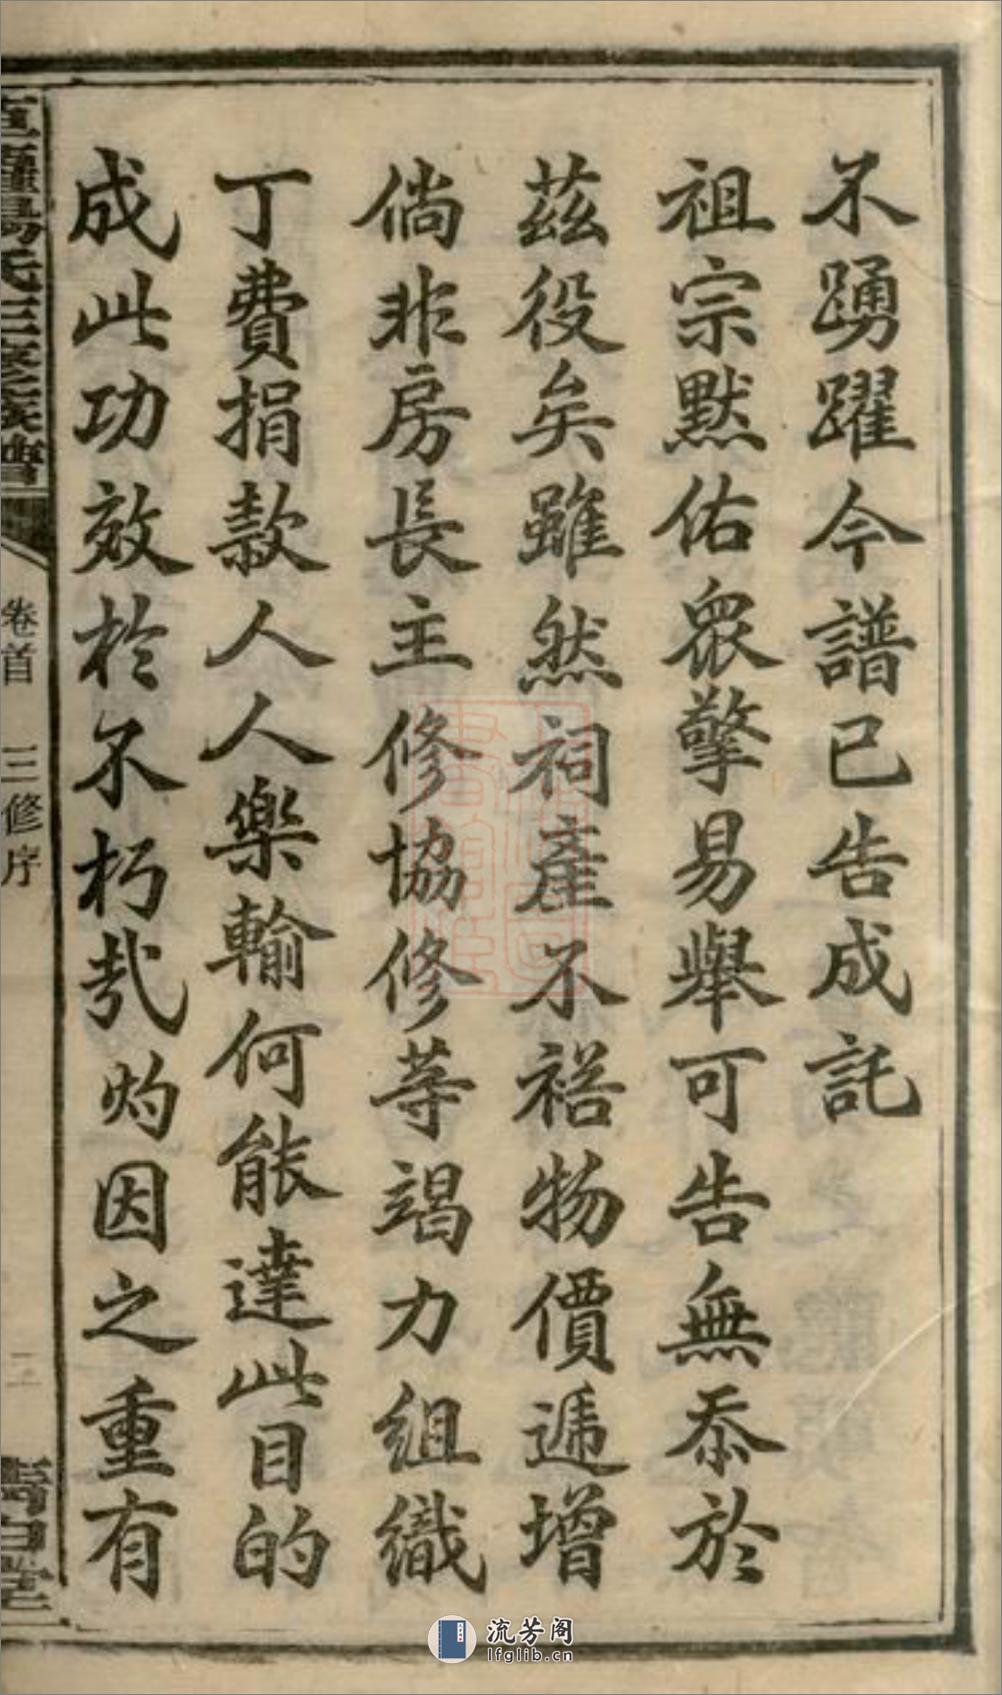 不踴躍今譜已告成託
祖宗默佑眾擎易舉可告無忝於
茲役矣雖然祠產不裕物價遞增
倘非房長主修協修等竭力組織
丁費捐款人人樂輸何能達此目的
成此功效於不朽哉灼因之重有
氏三修族譜
卷首 三修序
二
流芳阁
lfglib.cn